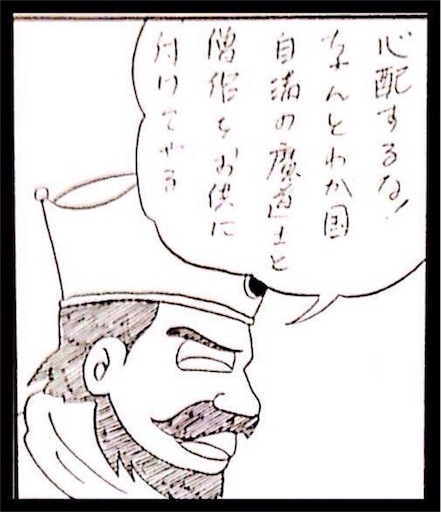 心配するな!
なんとわが国
自満の魔道士と
僧侶をお供に
付けてやる